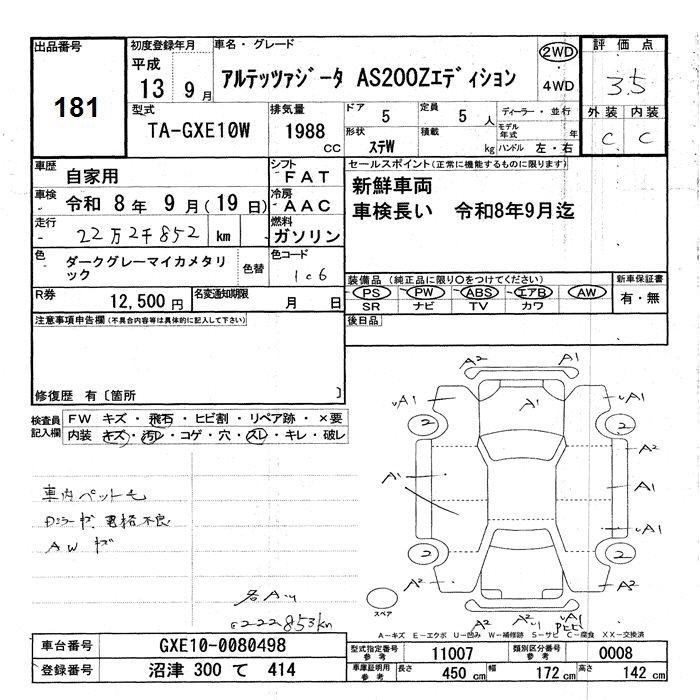 出品番号
181
初度登録年月
平成
13 9月
車名・グレード
アルテッツァジータ AS200Zエディション
2WD
4WD
評価点
3.5
外装 内装
C C
型式
TA-GXE10W
排気量
1988
cc
ドア 5
定員 5 人
形状 ステW
積載 kg
ディーラー・並行
モデル年式 年
ハンドル 左・右
車歴 自家用
車検 令和 8 年 9 月(19 日)
走行 22万2千852 km
色 ダークグレーマイカメタリック
色替
R券 12,500 円
名変通知期限 月 日
シフト FAT
冷房 AAC
燃料 ガソリン
色コード
1C6
セールスポイント(正常に機能するものに限ります)
新鮮車両
車検長い 令和8年9月迄
装備品(純正品に限り○をつけてください)
PS PW ABS エアB AW
SR ナビ TV カワ
新車保証書
有・無
後日品
注意事項申告欄(不具合内容等は具体的に記入して下さい)
修復歴 有〔箇所 〕
検査員記入欄
FW キズ・飛石・ヒビ割・リペア跡・×要
内装 キズ・汚レ・コゲ・穴・スレ・キレ・破レ
車内ペット毛
格不良
AW
222853km
A2 A1
A1
A1 A1
2 2
A2
A1 A1
A1
2 2
A2 A2
A2 A2
スペア
A-キズ E-エクボ U-凹み W-補修跡 S-サビ C-腐食 XX-交換済
車台番号 GXE10-0080498
登録番号 沼津 300 て 414
型式指定番号 参考 11007
類別区分番号 参考 0008
車庫証明用 参考 長さ 450 cm 幅 172 cm 高さ 142 cm